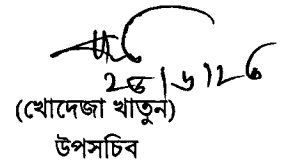 ২৫|৬|২৫
(খোদেজা খাতুন)
উপসচিব